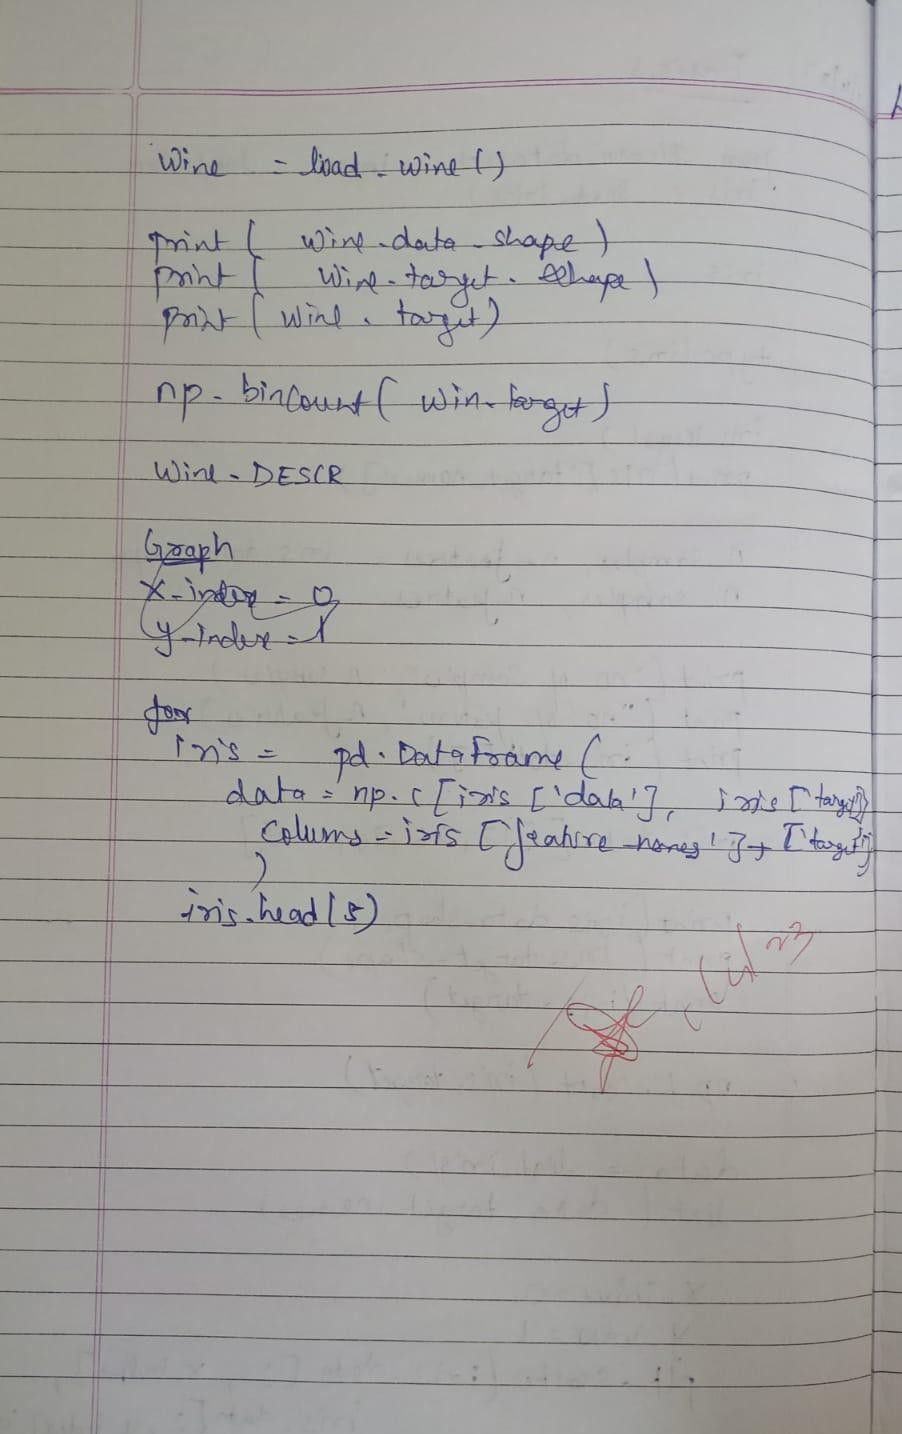 Wine = load - wine ()
print ( wine . data . shape )
print ( wine . target . shape )
print ( wine . target )
np . bincount ( win . target )
Wine . DESCR
Graph
X - index = 0
y - index = 1
for
iris = pd . DataFrame (
data = np . c [ iris ['data'], iris ['target']]
colums = iris ['feature - names'] + ['target']
)
iris . head (5)